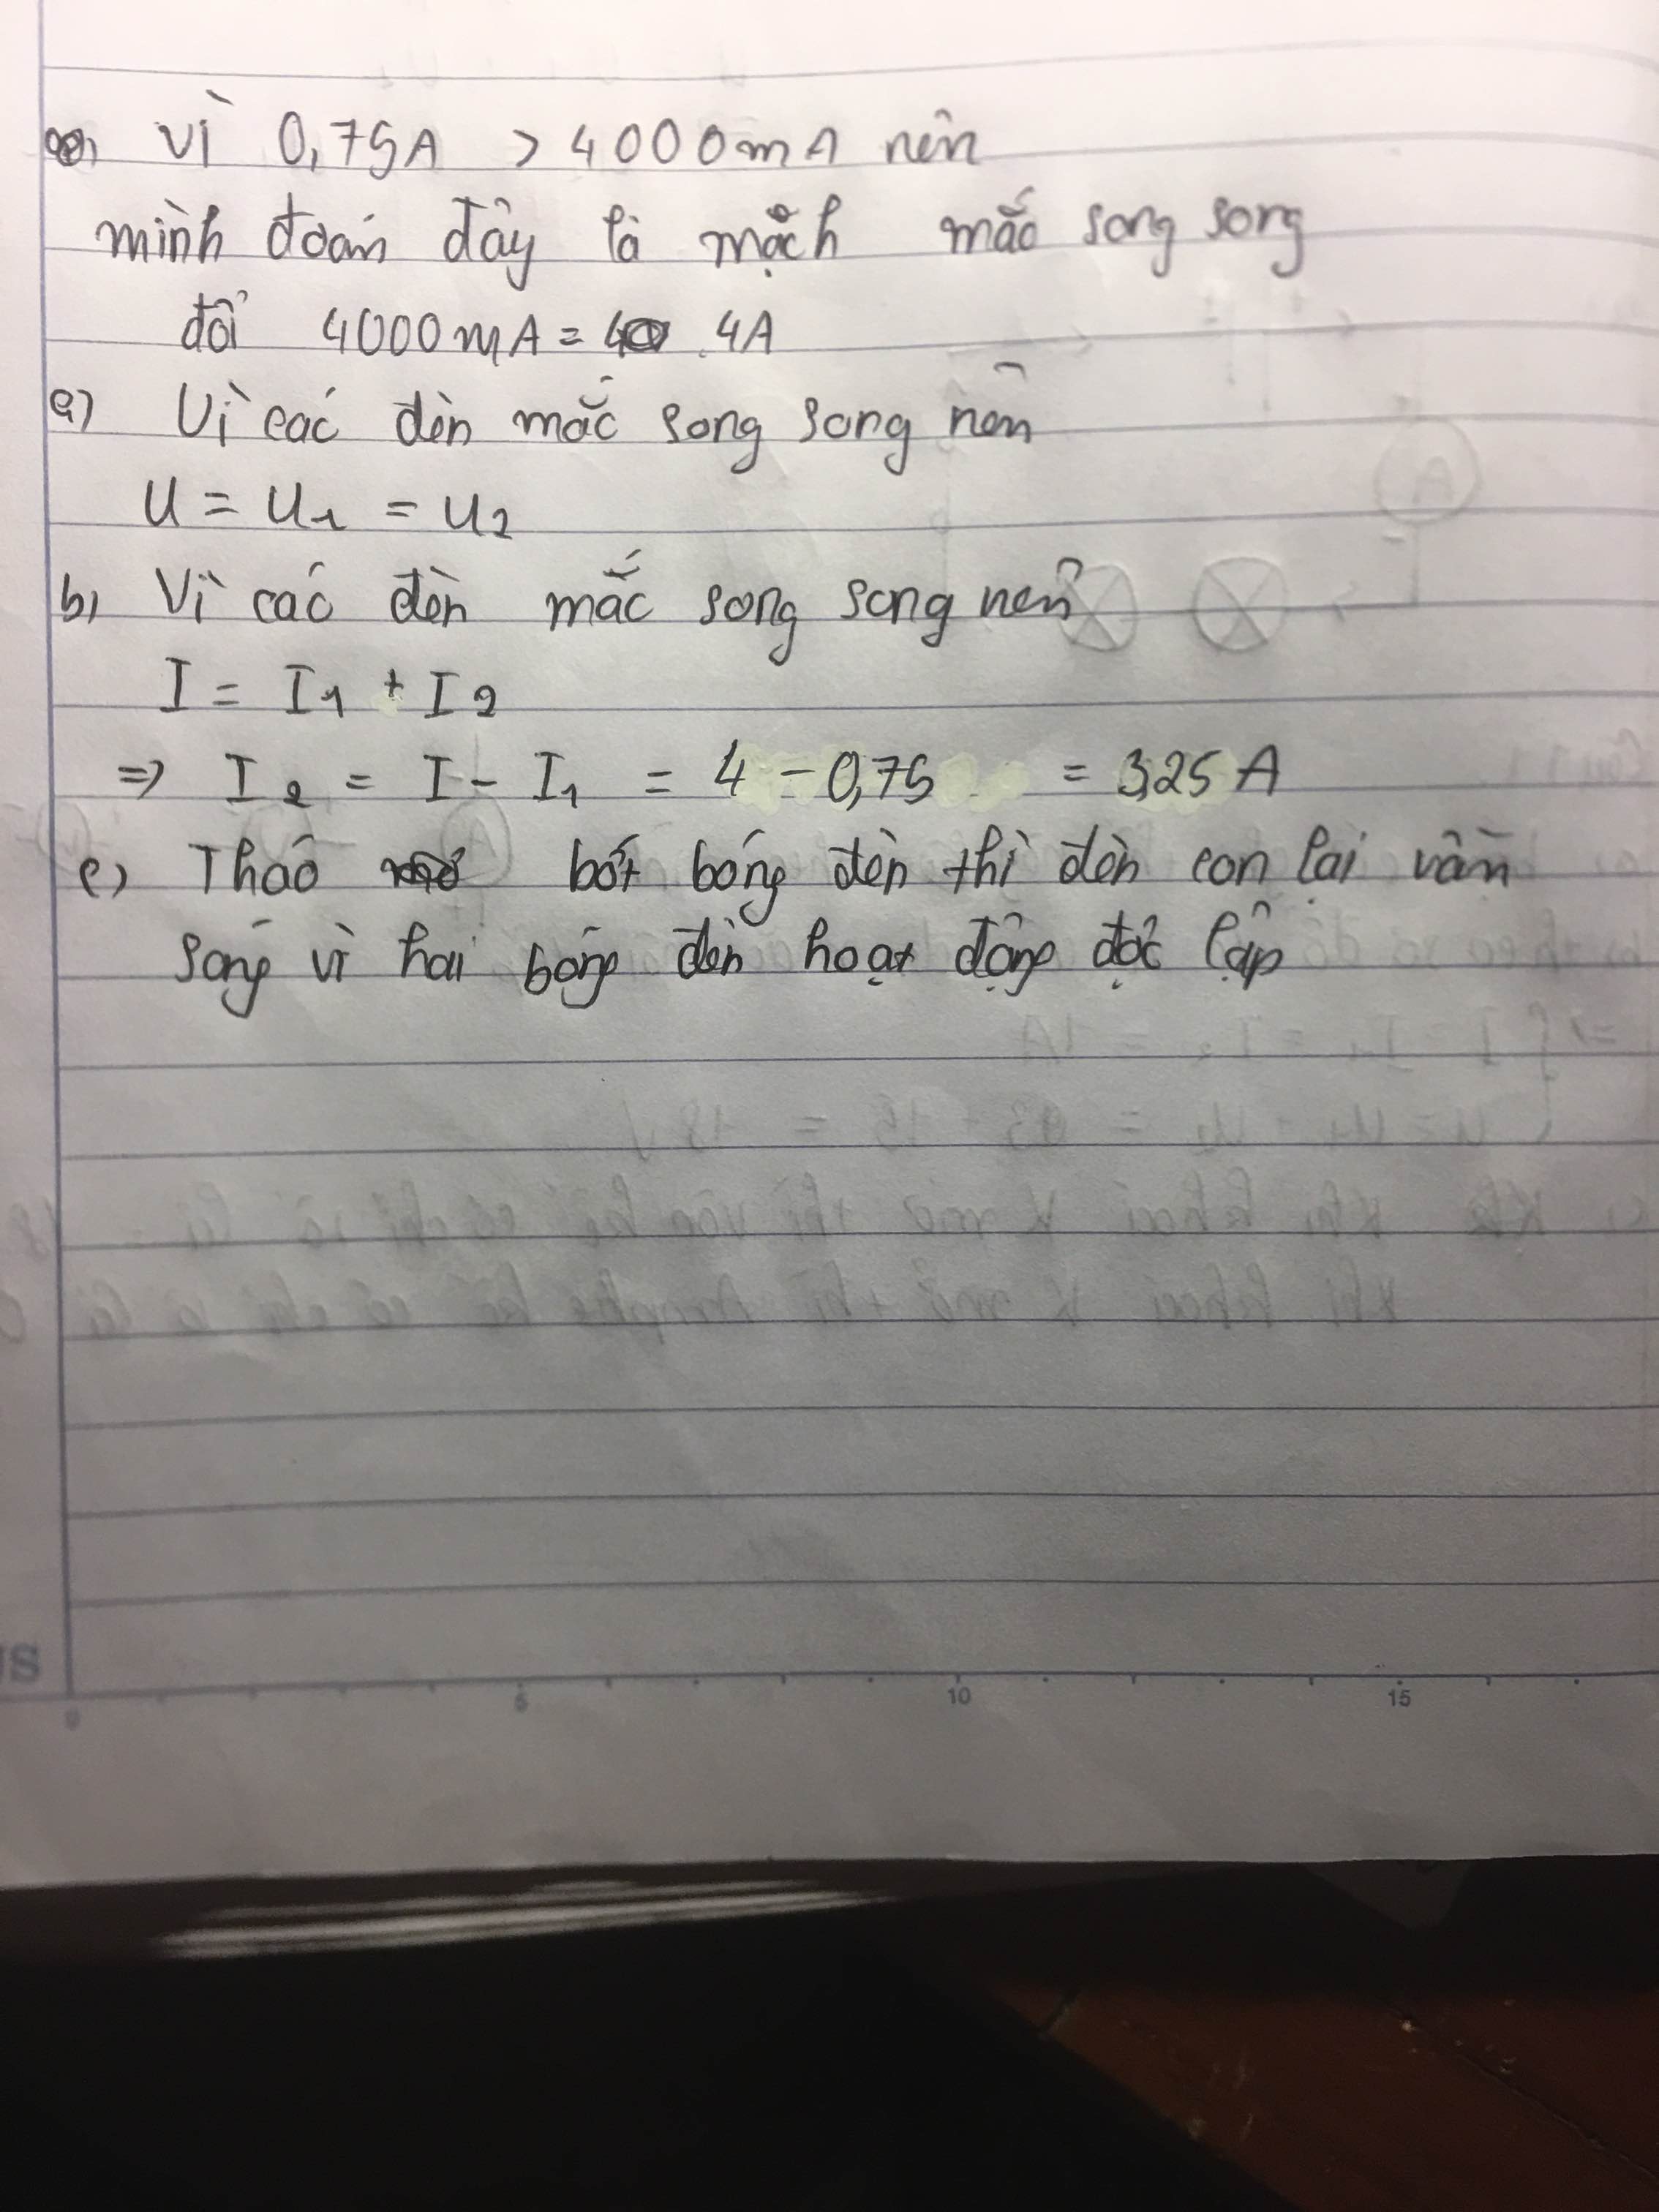 Vì 0,75A > 4000mA nên
mình đoán đây là mạch mắc song song
đổi 4000mA = 4A
a) Vì các đèn mắc song song nên
U = U1 = U2
b) Vì các đèn mắc song song nên
I = I1 + I2
=> I2 = I - I1 = 4 - 0,75 = 3,25 A
c) Tháo bớt bóng đèn thì đèn con lại vẫn
sáng vì hai bóng đèn hoạt động độc lập
US
0 5 10 15